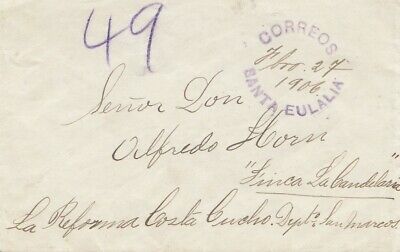 49
CORREOS
Fbro. 27
1906.
SANTA EULALIA
Señor Don
Alfredo Horn
"Finca La Candelaria"
La Reforma Costa Cucho. Depto. San Marcos.